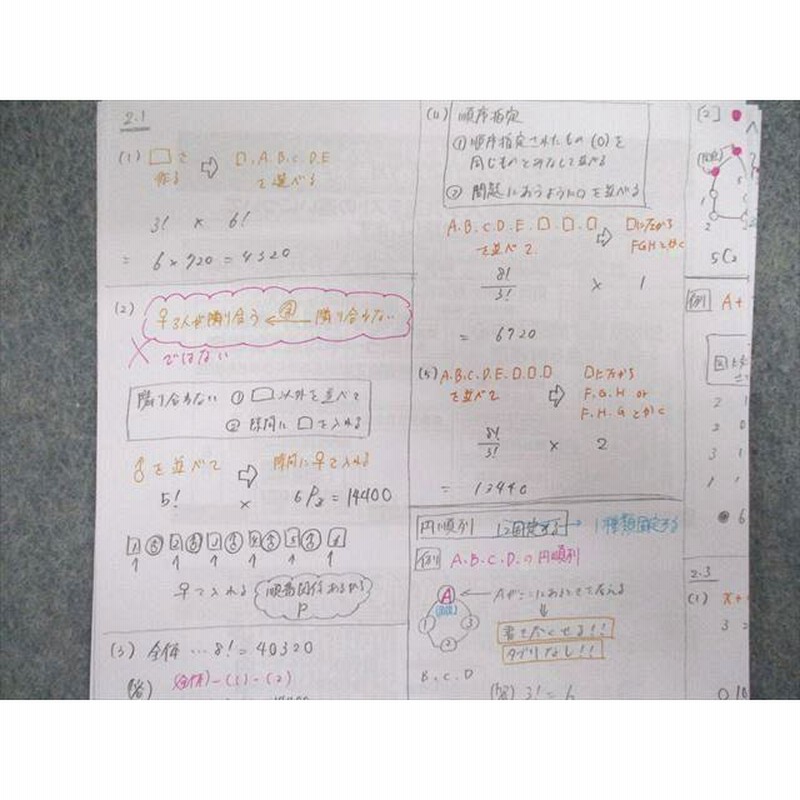 2.1
(1) □を作る ⇨ □,A,B,C,D,Eで並べる
3! × 6!
= 6×720=4320
(2) ♀3人が隣り合う ← 隣り合わない
× ではない
隣り合わない ① □以外を並べて
② 隙間に □を入れる
♂を並べて ⇨ 隙間に♀を入れる
5! × 6P3=14400
♀を入れる
順番関係あるから
P
(3) 全体…8!=40320
(全体)-(1)-(2)
(4) 順序指定
① 順序指定されたもの(○)を
同じものとみなして並べる
② 問題にあうように○を並べる
A.B.C.D.E.□.□.□
を並べて ⇨
8!/3! × 1
= 6720
(5) A.B.C.D.E.□.□.□
を並べて ⇨
F.G.H or
F.H.Gとかく
8!/3! × 2
= 13440
円順列 1つ固定する → 1種類固定する
例 A.B.C.D.の円順列
A
(固定)
1
2
3
書きかくせる!!
ダブりなし!!
B.C.D
3!=6
[2]
(固定)
1
2
5C2
例 A+
2 1
2 0
3 1
1 1
6
2.3
(1)
3 2